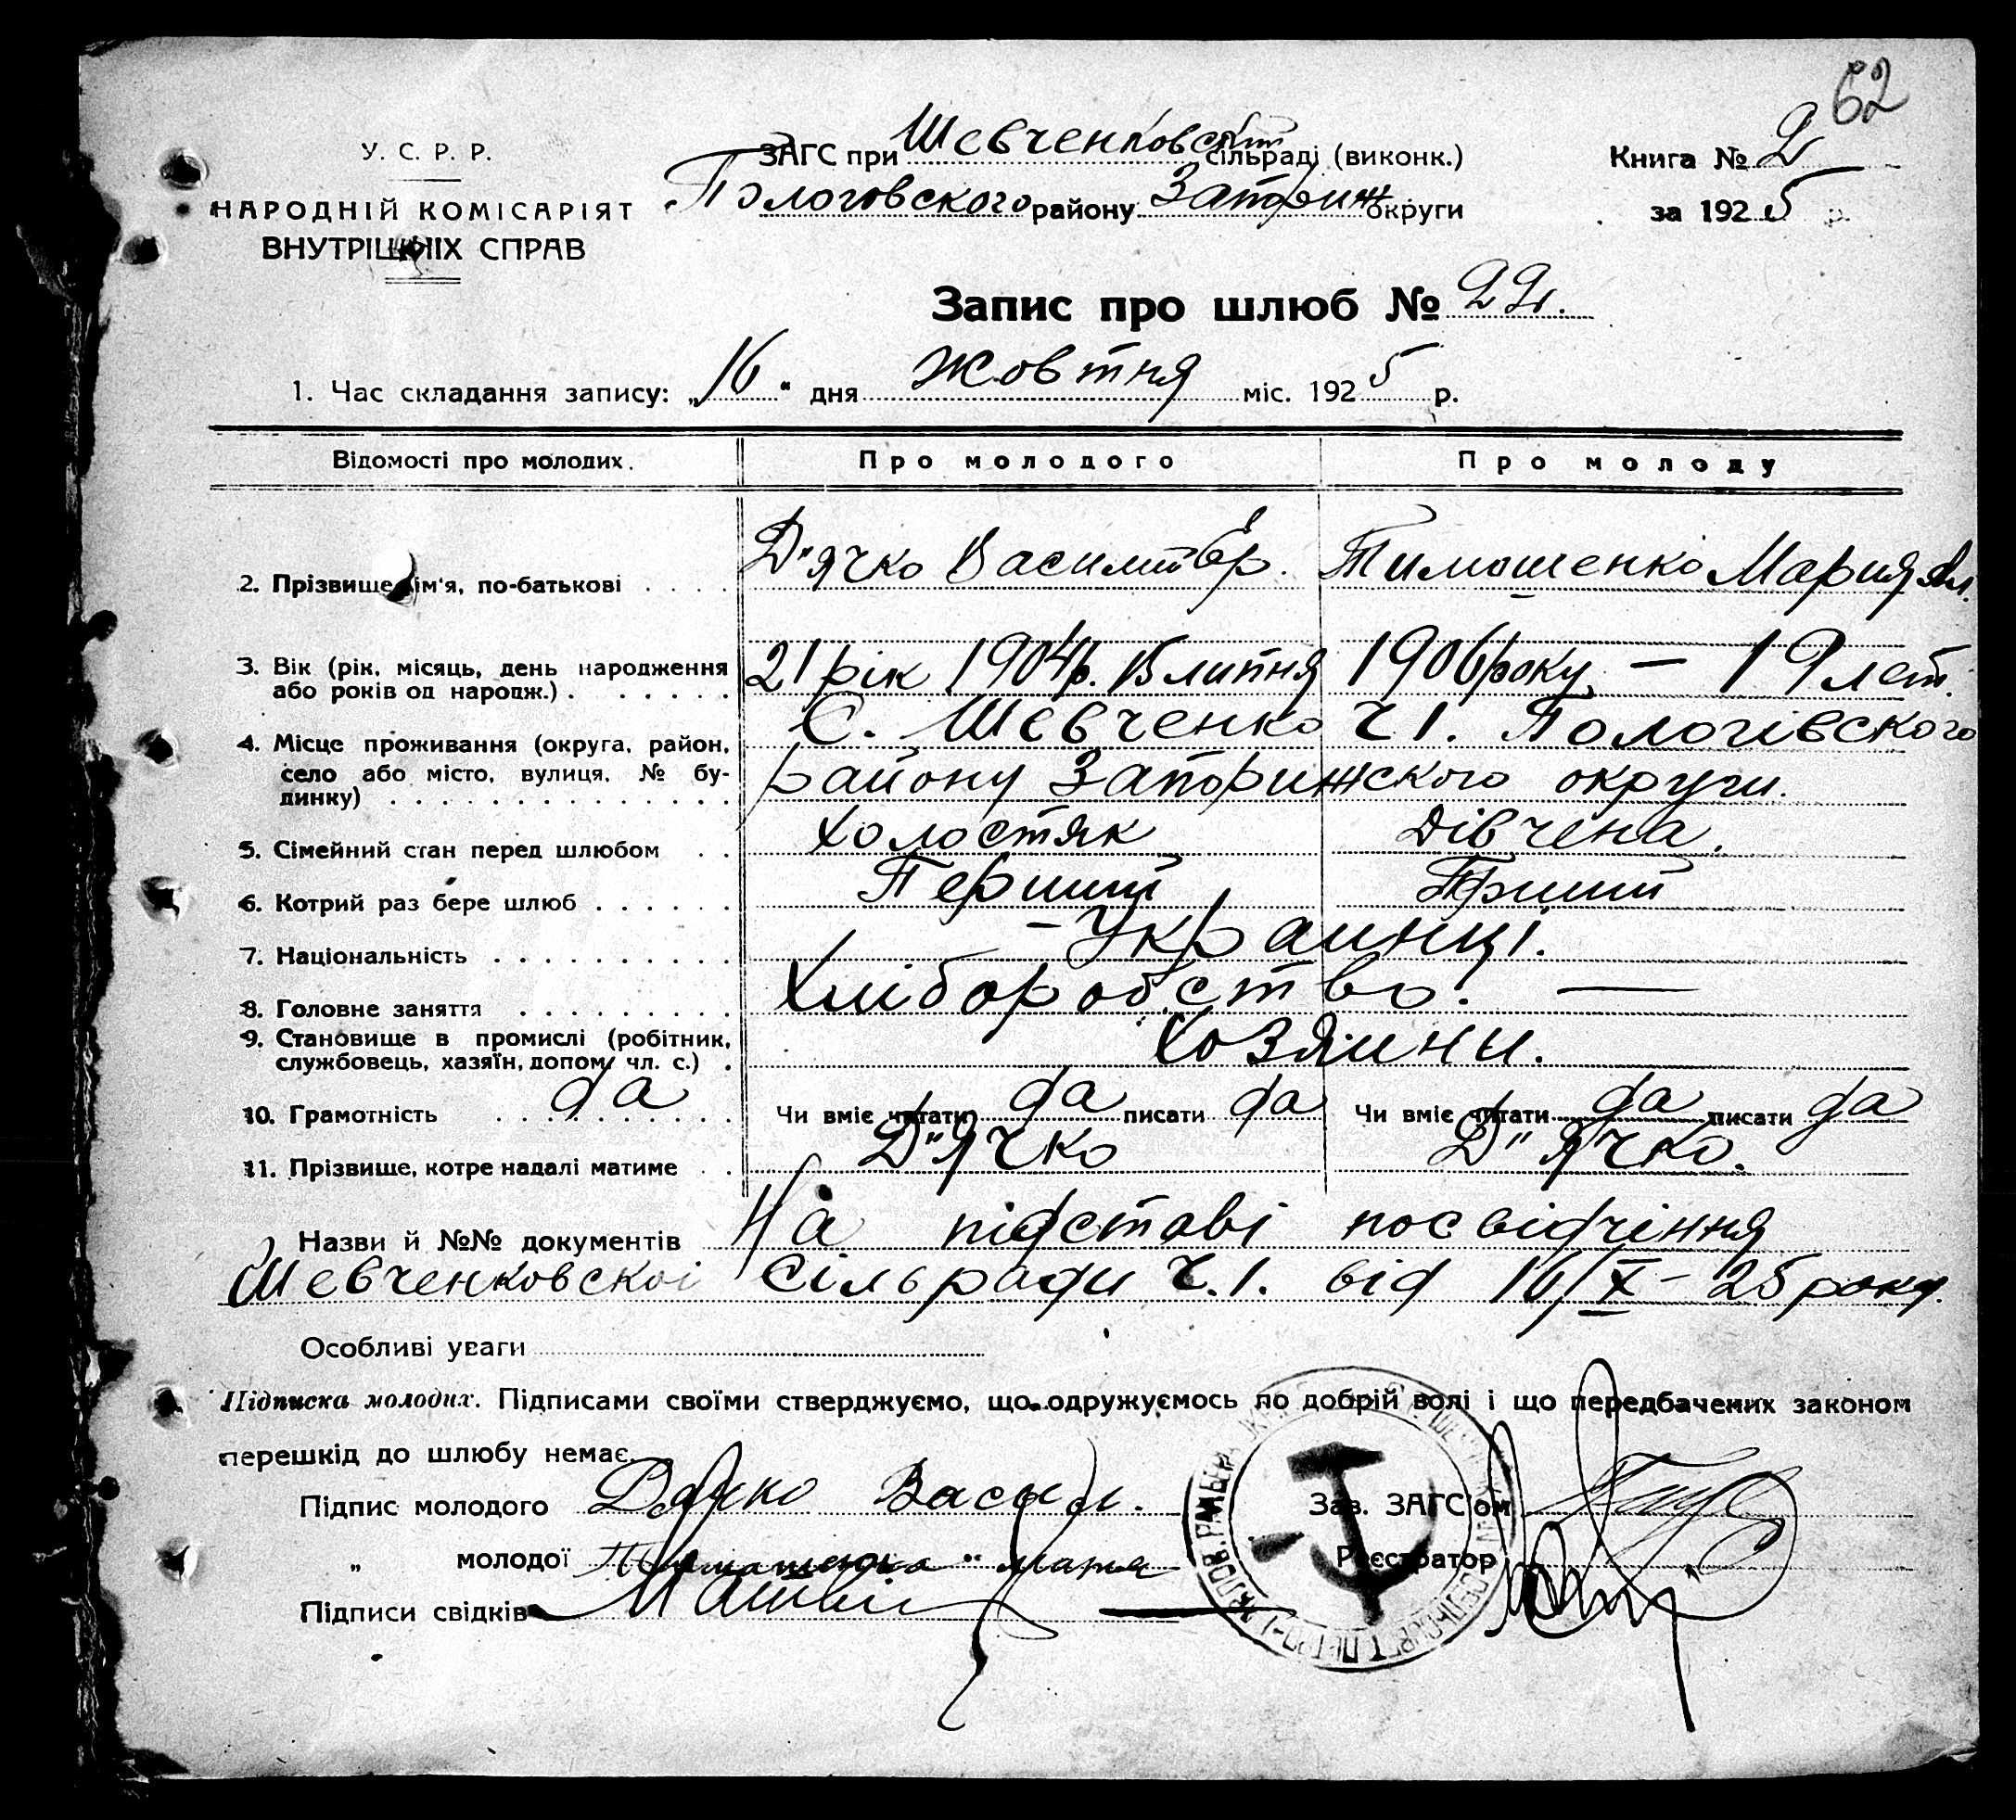 62
У. С. Р. Р.
НАРОДНІЙ КОМІСАРІЯТ
ВНУТРІШНІХ СПРАВ
ЗАГС при Шевченковский сільраді (виконк.)
Пологовского району Запориж округи
Книга № 2
за 1925 р.
Запис про шлюб № 22.
1. Час складання запису: „16“ дня Жовтня міс. 1925 р.
Відомості про молодих. Про молодого Про молоду
2. Прізвище, ім'я, по-батькові . . . . Д"ячко Василий Тимошенко Мария Ал.
3. Вік (рік, місяць, день народження
або років од народж.) . . . . . . . 21 рік 1904 р. 15 липня 1906 року — 19 лет.
4. Місце проживання (округа, район,
село або місто, вулиця, № бу-
динку) . . . . . . . . . . . . . .
С. Шевченко Ч 1. Пологівского
району Запорижского округи.
5. Сімейний стан перед шлюбом . . Холостяк Дівчена.
6. Котрий раз бере шлюб . . . . . . Перший Прший
7. Національність . . . . . . . . . . – Украинці.
8. Головне заняття . . . . . . . . . Хліборобство. —
9. Становище в промислі (робітник,
службовець, хазяїн, допом. чл. с.) . Хозяини.
10. Грамотність да Чи вміє читати да писати да Чи вміє читати да писати да
11. Прізвище, котре надалі матиме . . Д"ячко Д"ячко.
Назви й №№ документів На підставі посвідчіння
Шевченковскоі Сільради Ч.1. від 16/X – 25 року.
Особливі уваги
Підписка молодих. Підписами своїми стверджуємо, що одружуємось по добрій волі і що передбачених законом
перешкід до шлюбу немає.
Підпис молодого Дячко Васыл.
Зав. ЗАГС'ом
„ молодої
Реєстратор
Підписи свідків